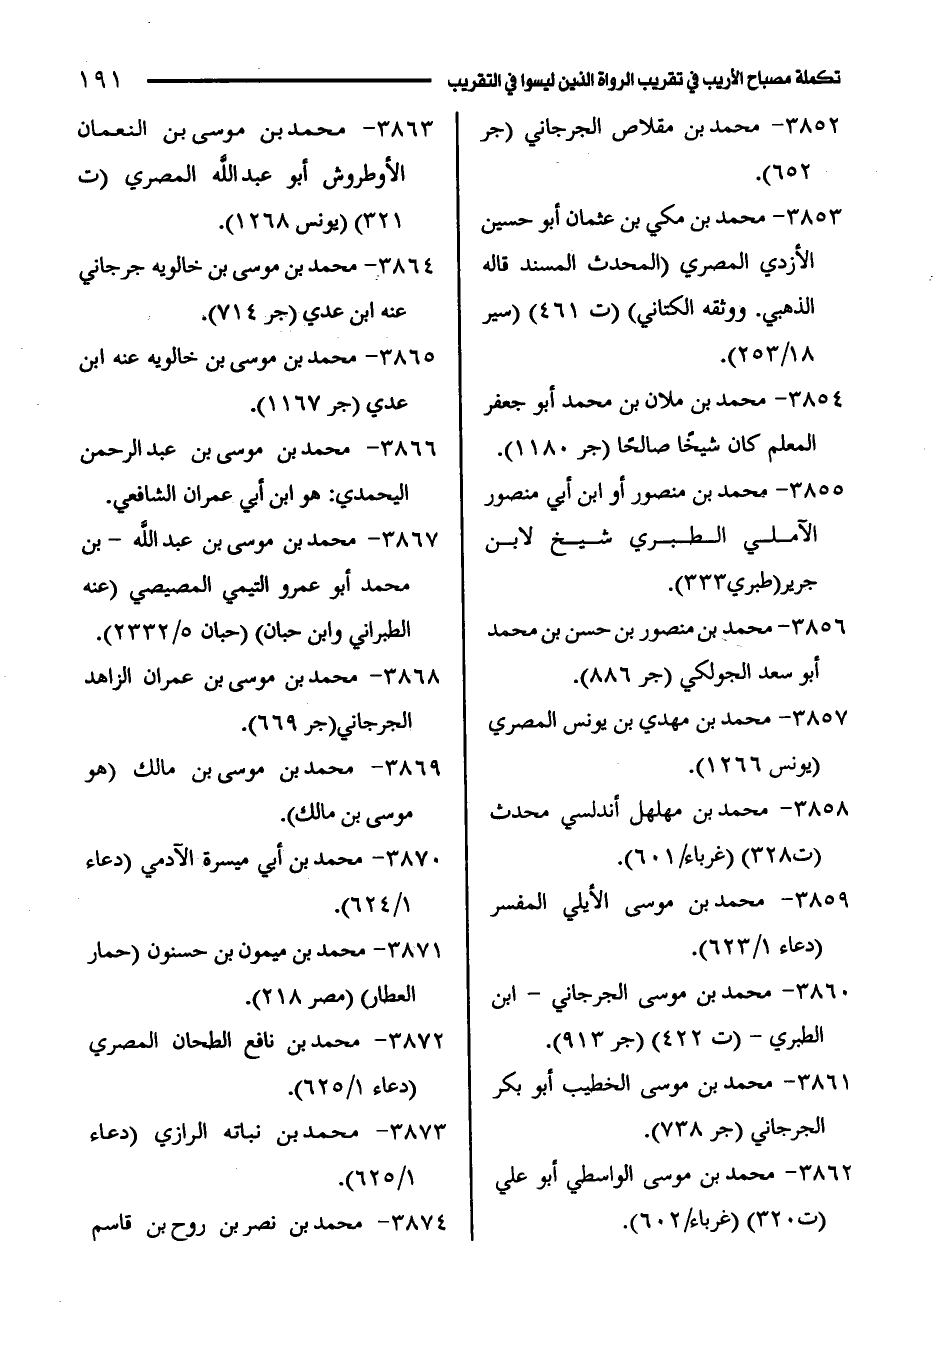 تكملة مصباح الأريب في تقريب الرواة الذين ليسوا في التقريب ١٩١
٣٨٥٢- محمد بن مقلاص الجرجاني (جر
٦٥٢).
٣٨٥٣- محمد بن مكي بن عثمان أبو حسين
الأزدي المصري (المحدث المسند قاله
الذهبي. ووثقه الكتاني) (ت ٤٦١) (سير
٢٥٣/١٨).
٣٨٥٤- محمد بن ملان بن محمد أبو جعفر
المعلم كان شيخًا صالحًا (جر ١١٨٠).
٣٨٥٥- محمد بن منصور أو ابن أبي منصور
الآملي الطبري شيخ لابن
جرير(طبري٣٣٣).
٣٨٥٦- محمد بن منصور بن حسن بن محمد
أبو سعد الجولكي (جر ٨٨٦).
٣٨٥٧- محمد بن مهدي بن يونس المصري
(يونس ١٢٦٦).
٣٨٥٨- محمد بن مهلهل أندلسي محدث
(ت٣٢٨) (غرباء/٦٠١).
٣٨٥٩- محمد بن موسى الأيلي المفسر
(دعاء ٦٢٣/١).
٣٨٦٠- محمد بن موسى الجرجاني - ابن
الطبري - (ت ٤٢٢) (جر ٩١٣).
٣٨٦١- محمد بن موسى الخطيب أبو بكر
الجرجاني (جر ٧٣٨).
٣٨٦٢- محمد بن موسى الواسطي أبو علي
(ت٣٢٠) (غرباء/٦٠٢).
٣٨٦٣- محمد بن موسى بن النعمان
الأوطروش أبو عبدالله المصري (ت
٣٢١) (يونس ١٢٦٨).
٣٨٦٤- محمد بن موسى بن خالويه جرجاني
عنه ابن عدي (جر ٧١٤).
٣٨٦٥- محمد بن موسى بن خالويه عنه ابن
عدي (جر ١١٦٧).
٣٨٦٦- محمد بن موسى بن عبدالرحمن
اليحمدي: هو ابن أبي عمران الشافعي.
٣٨٦٧- محمد بن موسى بن عبدالله - بن
محمد أبو عمرو التيمي المصيصي (عنه
الطبراني وابن حبان) (حبان ٢٣٣٢/٥).
٣٨٦٨- محمد بن موسى بن عمران الزاهد
الجرجاني(جر ٦٦٩).
٣٨٦٩- محمد بن موسى بن مالك (هو
موسى بن مالك).
٣٨٧٠- محمد بن أبي ميسرة الآدمي (دعاء
٦٢٤/١).
٣٨٧١- محمد بن ميمون بن حسنون (حمار
العطار) (مصر ٢١٨).
٣٨٧٢- محمد بن نافع الطحان المصري
(دعاء ٦٢٥/١).
٣٨٧٣- محمد بن نباته الرازي (دعاء
٦٢٥/١).
٣٨٧٤- محمد بن نصر بن روح بن قاسم